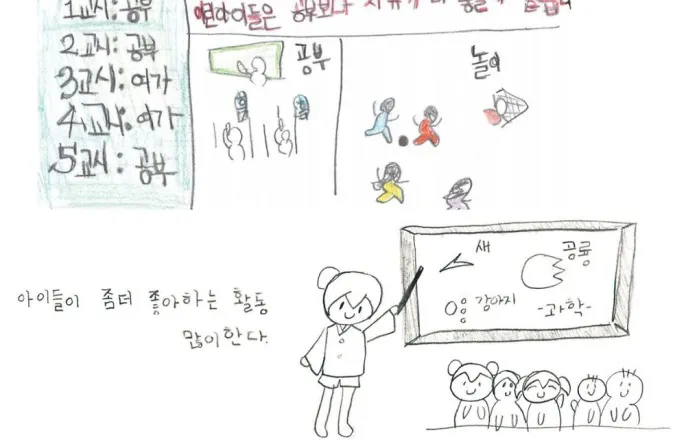 1교시: 공부
2교시: 공부
3교시: 여가
4교시: 여가
5교시: 공부
공부보다
공부
놀이
새
공룡
강아지
-과학-
아이들이 좀더 좋아하는 활동
많이한다.